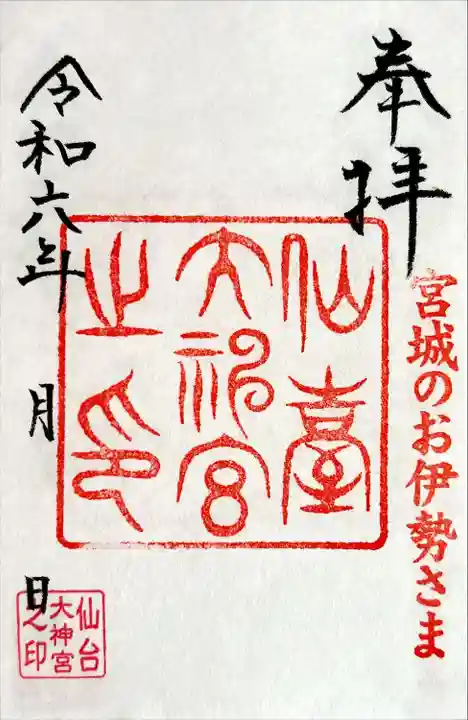 奉拝
宮城のお伊勢さま
仙臺
大神宮
之印
令和六年 月 日
仙台
大神宮
之印